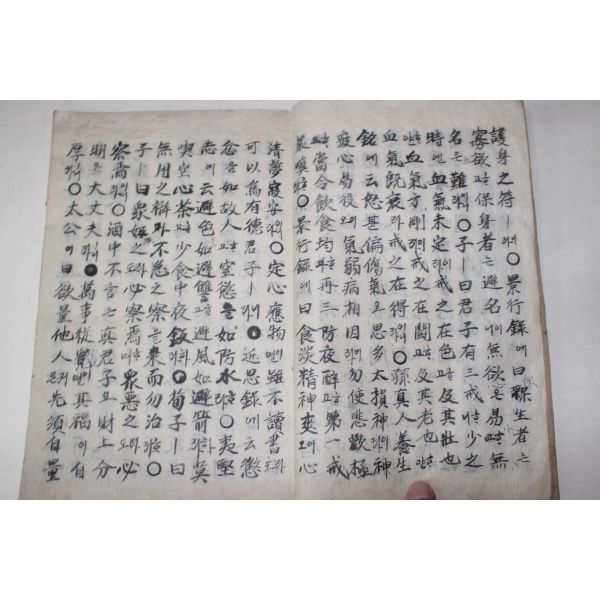 護身之符ㅣ니라○景行錄에曰保生者는
寡欲하고保身者는避名이니無欲은易하고無
名은難이니라○子ㅣ曰君子有三戒하니少之
時에血氣未定이라戒之在色하고及其壯也
하얀血氣方剛이라戒之在鬪하고及其老也하얀
血氣旣衰라戒之在得이니라○孫真人養生
銘에云怒甚偏傷氣오思多太損神이라神
疲心易役이오氣弱病相因이라勿使悲歡極
하고當令飮食均하고再三防夜醉하고第一戒
晨嗔하라○景行錄에曰食淡精神爽이오心
清夢寐安이니라○定心應物하면雖不讀書라도
可以爲有德君子ㅣ니라○近思錄에云懲
忿을如故人하고窒慾을如防水하라○夷堅
志에云避色如避讐하고避風如避箭하며莫
喫空心茶하고少食中夜飯하라○荀子ㅣ曰
無用之辯과不急之察을棄而勿治하라○
子ㅣ曰衆好之라도必察焉하며衆惡之라도必
察焉이니라○酒中不言은真君子오財上分
明은大丈夫니라○萬事從寬이면其福이自
厚니라○太公이曰欲量他人인대先須自量